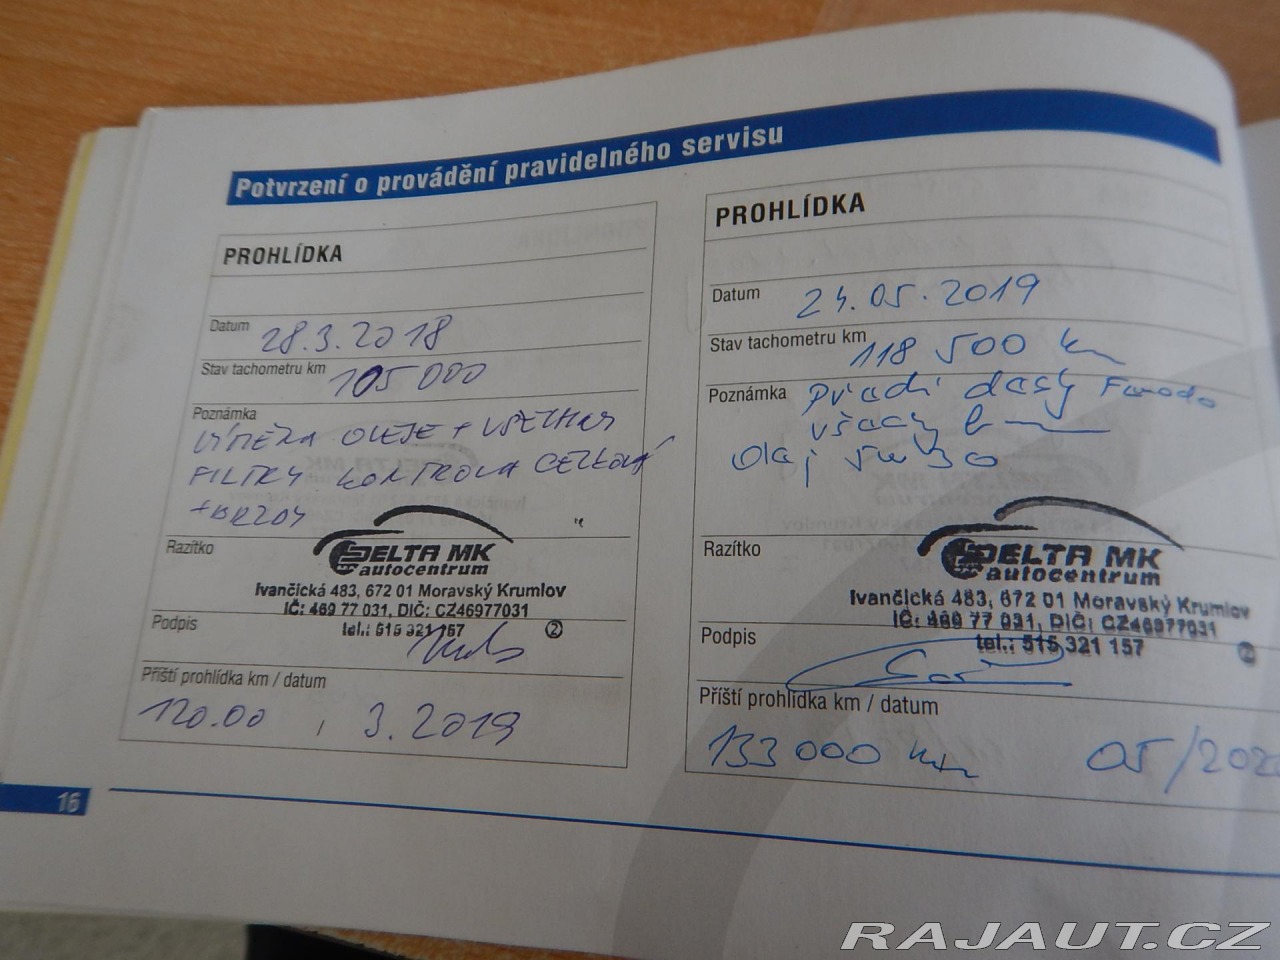 Potvrzení o provádění pravidelného servisu
PROHLÍDKA
Datum 28.3.2018
Stav tachometru km 105 000
Poznámka
VÝMĚNA OLEJE + VŠECHNY
FILTRY KONTROLA CELKOVÁ
+ BRZDY
Razítko
DELTA MK
autocentrum
Ivančická 483, 672 01 Moravský Krumlov
IČ: 469 77 031, DIČ: CZ46977031
tel.: 515 321 157 2
Podpis
Příští prohlídka km / datum
120.00 , 3.2019
PROHLÍDKA
Datum 24.05.2019
Stav tachometru km 118 500 km
Poznámka Přední desky
všechny
Olej 5W30
Razítko
DELTA MK
autocentrum
Ivančická 483, 672 01 Moravský Krumlov
IČ: 469 77 031, DIČ: CZ46977031
tel.: 515 321 157 2
Podpis
Příští prohlídka km / datum
133 000 km 05/202
16
RAJAUT.CZ